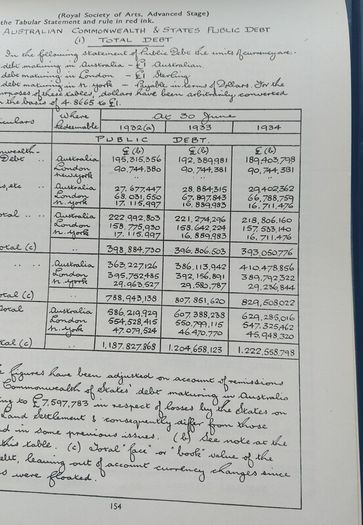 (Royal Society of Arts, Advanced Stage)
the Tabular Statement and rule in red ink.
AUSTRALIAN COMMONWEALTH & STATES PUBLIC DEBT
(1) TOTAL DEBT
In the following statement of Public Debt the units of currency are:
debt maturing in Australia – £1 Australian.
debt maturing in London – £1 Sterling.
debt maturing in N. York – Payable in terms of Dollars. For the
purposes of these tables, dollars have been arbitrarily converted
the basis of 4.8665 to £1.
Where Redeemable At 30 June
1932(a) 1933 1934
PUBLIC DEBT.
£(b) £(b) £(b)
Debt Australia 195,315,356 192,389,981 189,403,798
London 90,744,380 90,744,381 90,744,381
New York
etc Australia 27,677,447 28,884,315 29,402,362
London 68,031,550 67,897,843 66,788,759
N. York 17,115,997 16,889,983 16,711,476
Australia 222,992,803 221,274,296 218,806,160
London 158,775,930 158,642,224 157,533,140
N. York 17,115,997 16,889,983 16,711,476
(c) 398,884,730 396,806,503 393,050,776
Australia 363,227,126 386,113,942 410,478,856
London 395,752,485 392,156,891 389,792,322
N. York 29,963,527 29,580,787 29,236,844
(c) 788,943,138 807,851,620 829,508,022
Australia 586,219,929 607,388,238 629,285,016
London 554,528,415 550,799,115 547,325,462
N. York 47,079,524 46,470,770 45,948,320
1,187,827,868 1,204,658,123 1,222,558,798
figures have been adjusted on account of remissions
Commonwealth of States' debt maturing in Australia
to £7,597,783 in respect of losses by the States on
Land Settlement & consequently differ from those
in some previous issues. (b) See note at the
this table. (c) Total "face" or "book" value of the
debt, leaving out of account currency changes since
were floated.
154